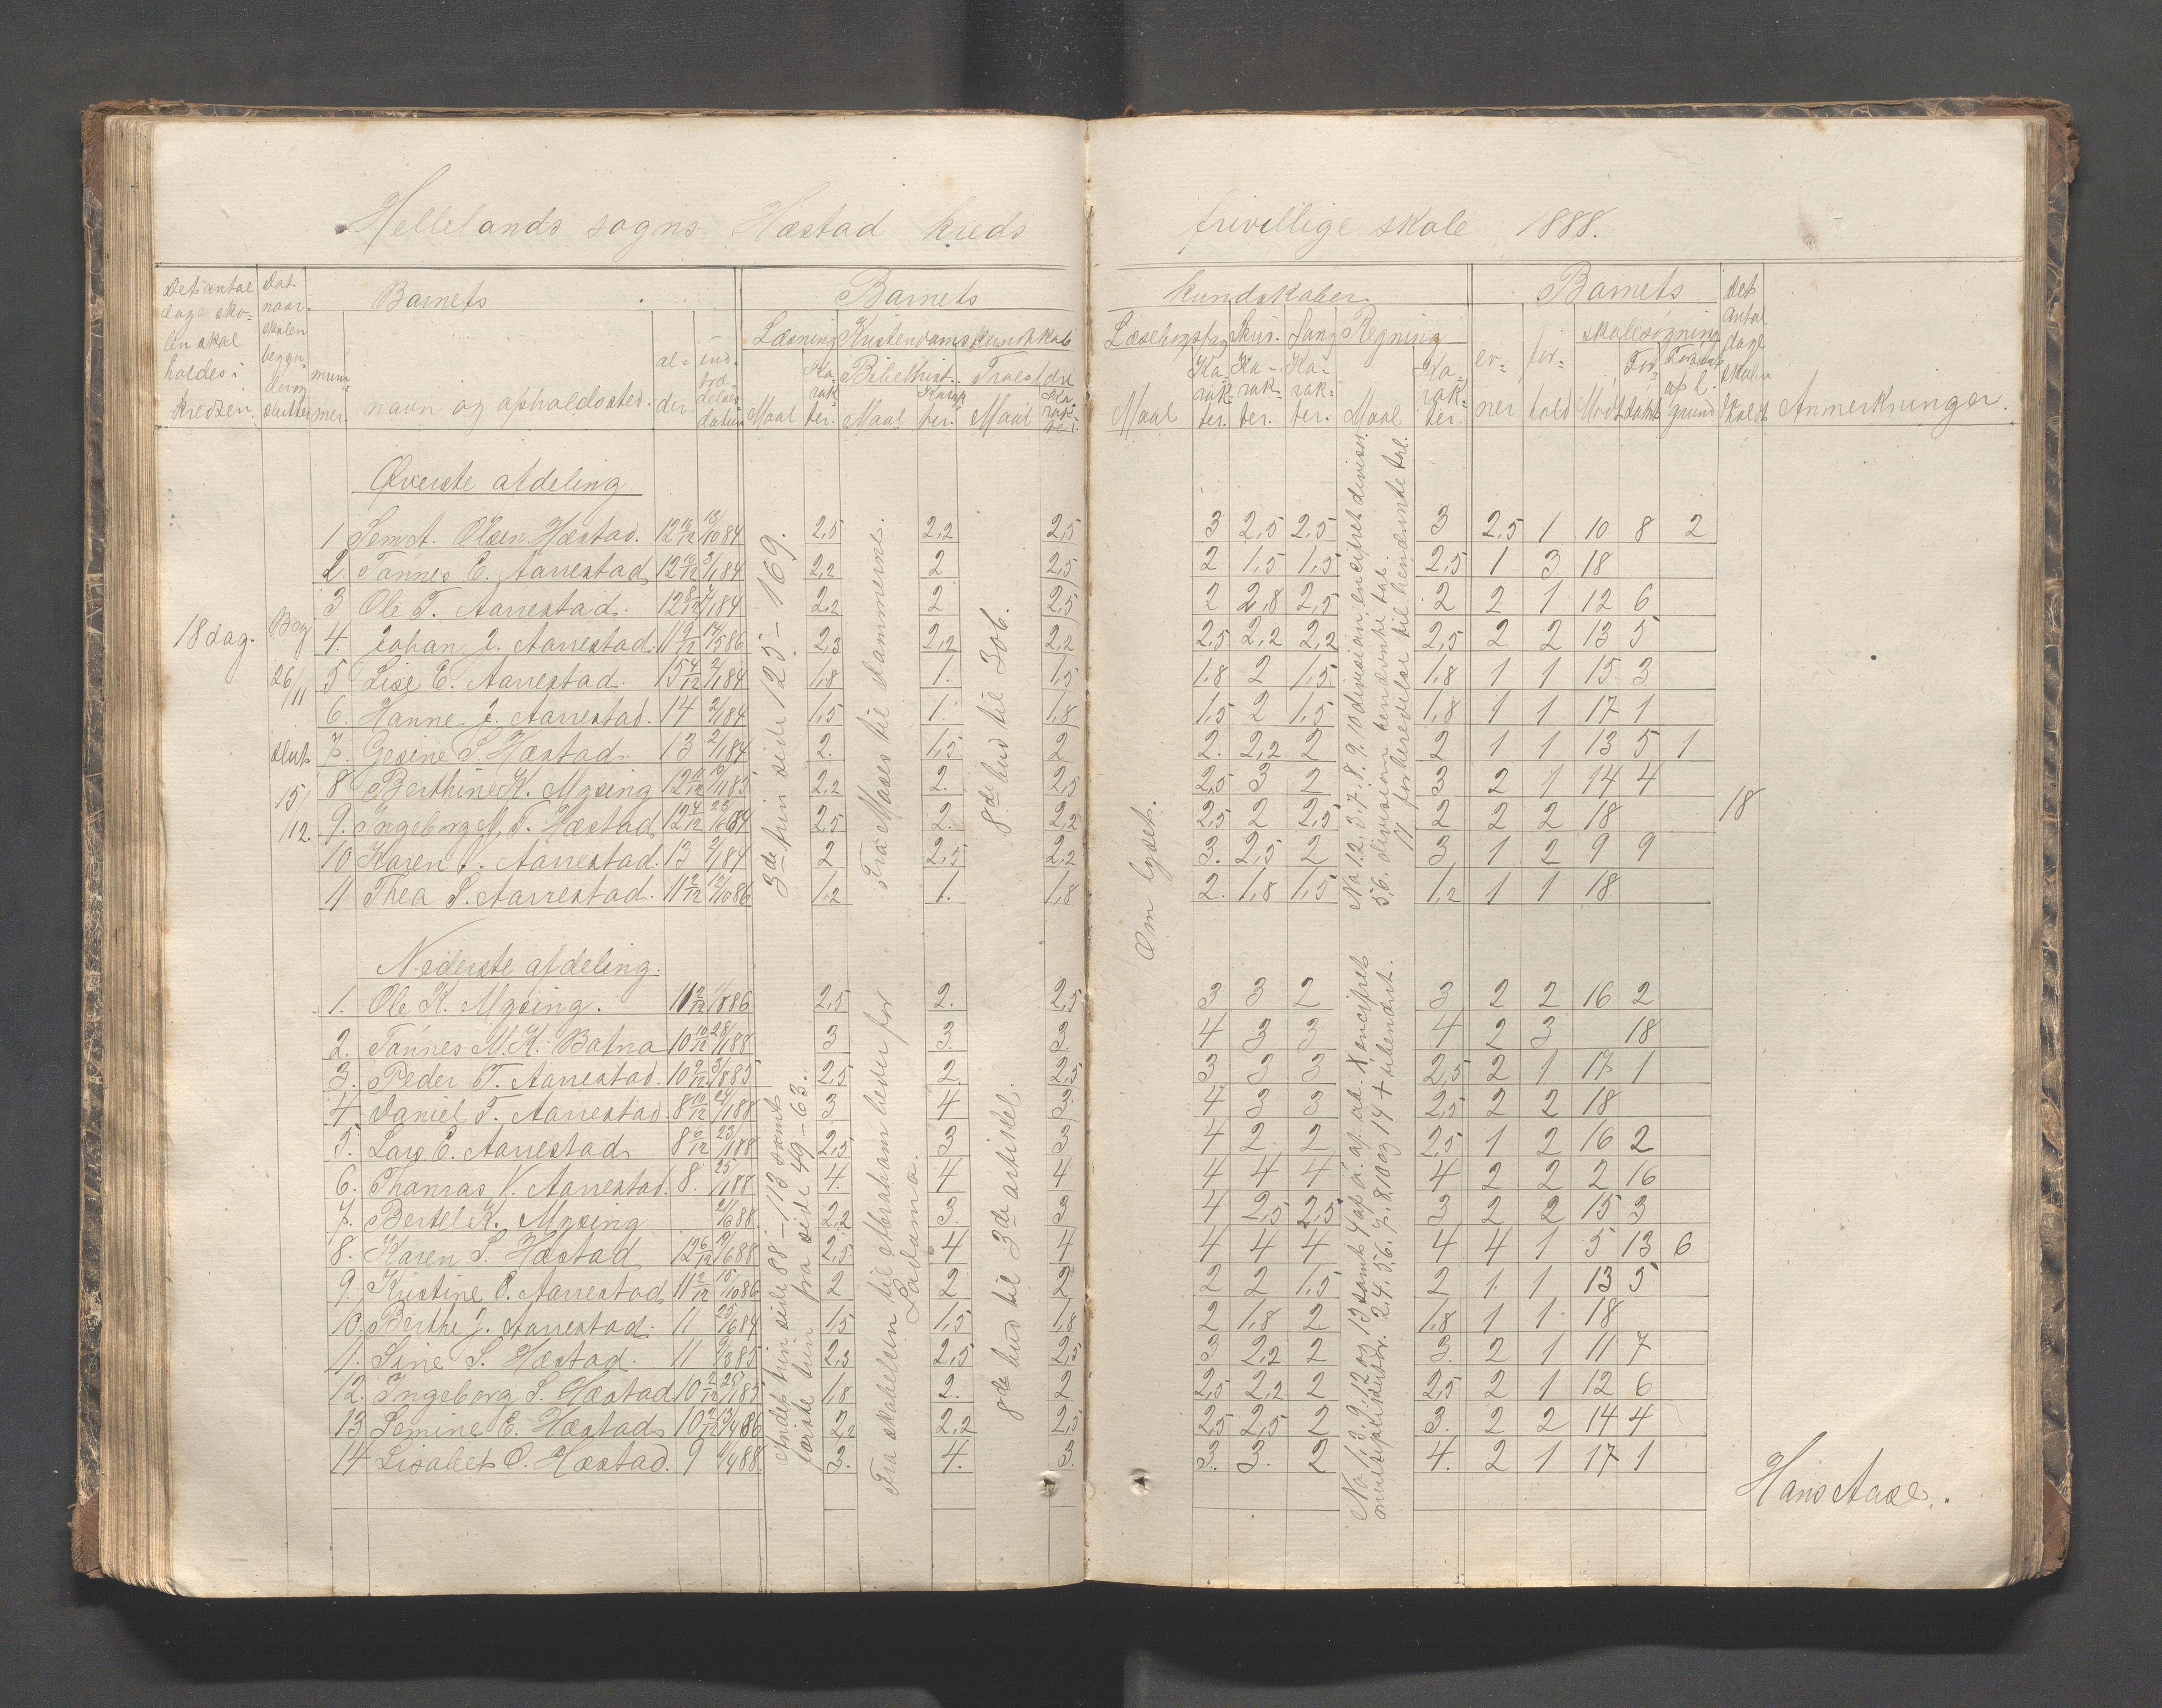 Hellelands sogns Hæstad kreds frivillige skole 1888.
Det antal dage skolen skal holdes i kredsen.
Dat. naar skolen begynder og slutter
Barnets
nummer.
navn og opholdssted.
alder
indtrædelsesdatum
Barnets kundskaber.
Læsning Kristendomskundskab
Maal Karakter.
Bibelhist. Maal Karakter.
Troeslære Maal Karakter
Læsebogstag Maal Karakter.
Skriv. Karakter.
Sang Karakter.
Regning Maal Karakter.
Barnets
evner
forhold
skolesøgning
Mødt
Forsømt
det Antal dage skolen holdt
Anmerkninger.
Øverste afdeling.
1 Sem. A. Olsen Hæstad. 12 10/12 13/10 84 2,5 2,2 2,5 3 2,5 2,5 3 2,5 1 10 8 2
2. Tønnes E. Aarrestad 12 10/12 3/1 84 2,2 2 2,5 2 1,5 1,5 2,5 1 3 18
3 Ole T. Aarrestad. 12 8/12 84 2,2 2 2,5 2 2,8 2,5 2 2 1 12 6
4. Johan J. Aarrestad. 11 9/12 14/5 86 2,3 2,2 2,2 2,5 2,2 2,2 2,5 2 2 13 5
5 Lise E. Aarrestad. 15 4/12 2/1 84 1,8 1. 1,5 1,8 2 1,5 1,8 1 1 15 3
6. Hanne J. Aarrestad. 14 2/1 84 1,5 1. 1,8 1,5 2 1,5 1,8 1 1 17 1
7. Gesine S. Hæstad. 13 2/1 84 2. 1,5 2 2. 2,2 2 2 1 1 13 5 1
8 Berthine K. Mysing 12 11/12 85 2,2 2. 2,5 2,5 3 2 3 2 1 14 4
9. Ingeborg M. T. Hæstad 12 4/12 84 2,5 2. 2,2 2,5 2 2,5 2 2 2 18
10 Karen V. Aarrestad. 13 2/1 84 2 2,5 2,2 3. 2,5 2 3 1 2 9 9
11 Thea S. Aarrestad. 11 2/12 12/10 86 1,2 1. 1,8 2. 1,8 1,5 1,2 1 1 18
18 dag.
Beg 26/11
slut 15/12.
18
3de trin side 125-169.
Fra Moses til dommerne.
8de bud til 3 ob.
Øm lyset.
No 1. 2. 3. 7. 8. 9. 10 division, encifret divisor.
5,6. division benævnte tal.
11 forberedelse til benævnte tal.
Nederste afdeling.
1. Ole K. Mysing. 11 2/12 86 2,5 2. 2,5 3 3 2 3 2 2 16 2
2. Tønnes M. K. Botna 10 10/12 28/1 88 3 3. 3 4 3 3 4 2 3 18
3. Peder T. Aarrestad. 10 9/12 85 2,5 2. 2,5 3 3 3 2,5 2 1 17 1
4 Daniel T. Aarrestad. 8 10/12 24/1 88 3 4 3. 4 3 3 2,5 2 2 18
5. Lars E. Aarrestad 8 6/12 23/1 88 2,5 3 3 4 2 2 2,5 1 2 16 2
6. Thomas V. Aarrestad. 8. 25/1 88 4. 4 4 4 4 4 4 2 2 2 16
7. Bertel K. Mysing 88 2,2 3. 3 4 2,5 2,5 3 2 2 15 3
8. Karen S. Hæstad 12 6/12 88 2,5 4 4 4 4 4 4 4 1 5 13 6
9. Kristine O. Aarrestad 11 2/12 15/10 86 2 2 2 2 2 1,5 2 1. 1 13 5
10. Berthe J. Aarrestad. 11 25/6 84 1,5 1,5 1,8 2 1,8 2 1,8 1 1 18
11. Sine S. Hæstad. 11 9/3 85 2,3 2,5 2,5 3 2,2 2 3. 2 1 11 7
12. Ingeborg S. Hæstad 10 2/12 25/1 85 1,8 2. 2 2,5 2,2 2 2,5 2 1 12 6
13 Semine E. Hæstad 10 2/12 13/4 86 2,2 2,2 2,5 2,5 2,5 2 3. 2 2 14 4
14 Lisabet O. Hæstad. 9 88 3. 4. 3. 3. 3. 2 4. 2 1 17 1
Andet trin side 88-113 samt
første trin fra side 49-63.
Fra skabelsen til Abraham beder for
Sodoma.
8de bud til 3de artikel.
No 1. 3. 9. 12 og 13 samt 4 encifret
multiplikator. 2. 4. 5,6. 7. 8, 10 og 14 + ubenævnt.
Hans Aase.